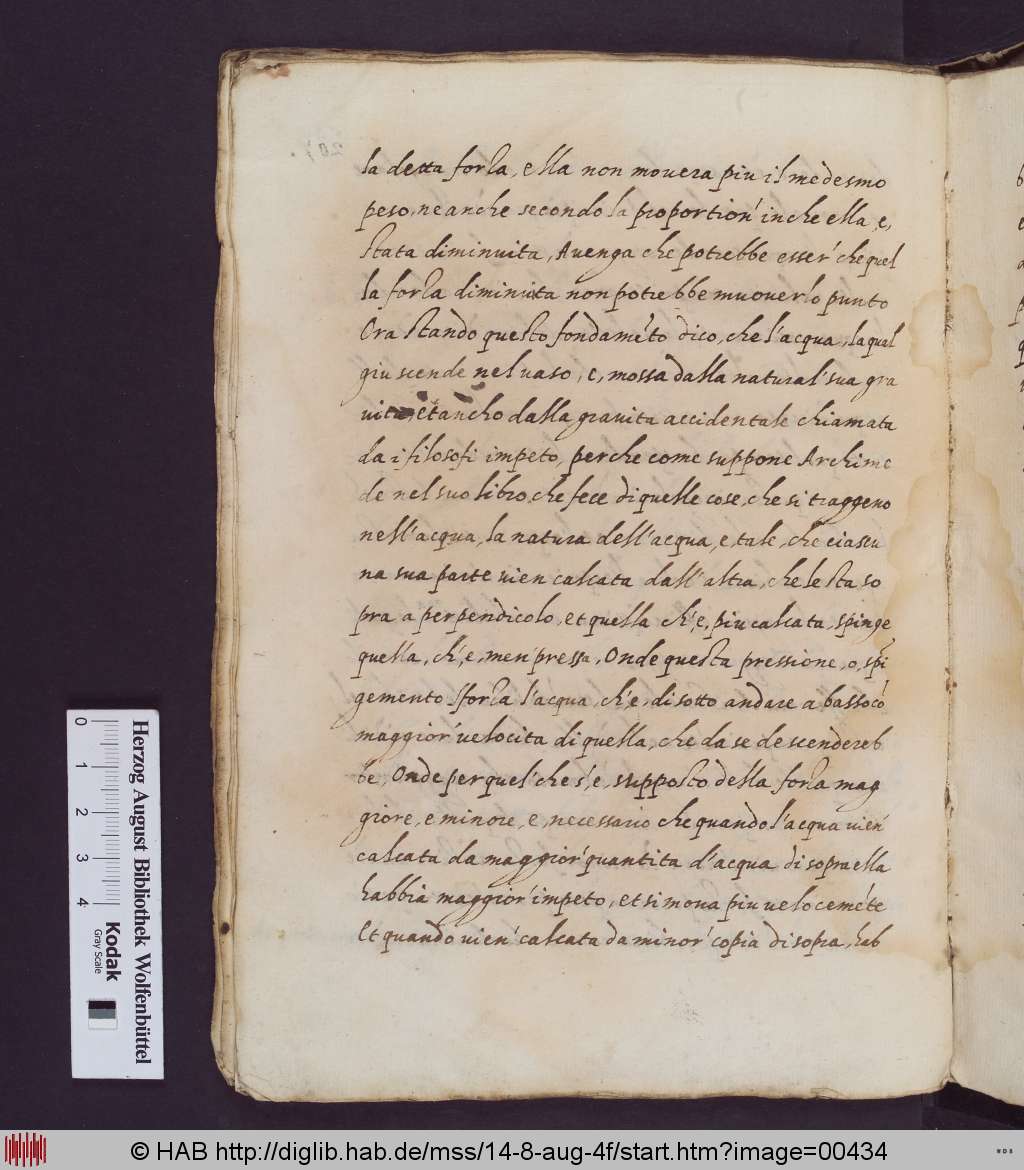 la detta forza, ella non movera piu il medesmo
peso, ne anche secondo la proportion' in che ella, e,
stata diminuita, Avenga che potrebbe esser' che quel
la forza diminuita non potrebbe muoverlo punto
Ora stando questo fondaméto dico, che l'acqua, la qual
giu scende nel vaso, e, mossa dalla natural' sua gra
vita, et ancho dalla gravita accidentale chiamata
da i filosofi impeto, perche come suppone Archime
de nel suo libro, che fece di quelle cose, che si traggeno
nell'acqua, la natura dell'acqua, e, tale, che ciascu
na sua parte vien calcata dall'altra, che le sta so
pra a perpendicolo, et quella ch'e, piu calcata, spinge
quella, ch'e, men' pressa, Onde questa pressione, o, spī
gemento sforza l'acqua, ch'e, di sotto andare a basso có
maggior' velocita di quella, che da se descendereb
be, Onde per quel' che s'e, supposto della forza mag
giore, e minore, e, necessario che quando l'acqua vien'
calcata da maggior' quantita d'acqua di sopra ella
habbia maggior' impeto, et si mova piu veloceméte
Et quando vien' calcata da minor' copia di sopra, hab
Herzog August Bibliothek Wolfenbüttel
Kodak
Gray Scale
0 1 2 3 4
© HAB http://diglib.hab.de/mss/14-8-aug-4f/start.htm?image=00434